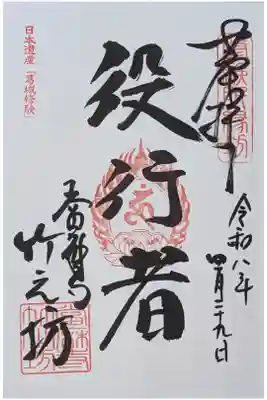 奉拝
令和八年
四月二十九日
役行者
日本遺産「葛城修験」
竹元坊